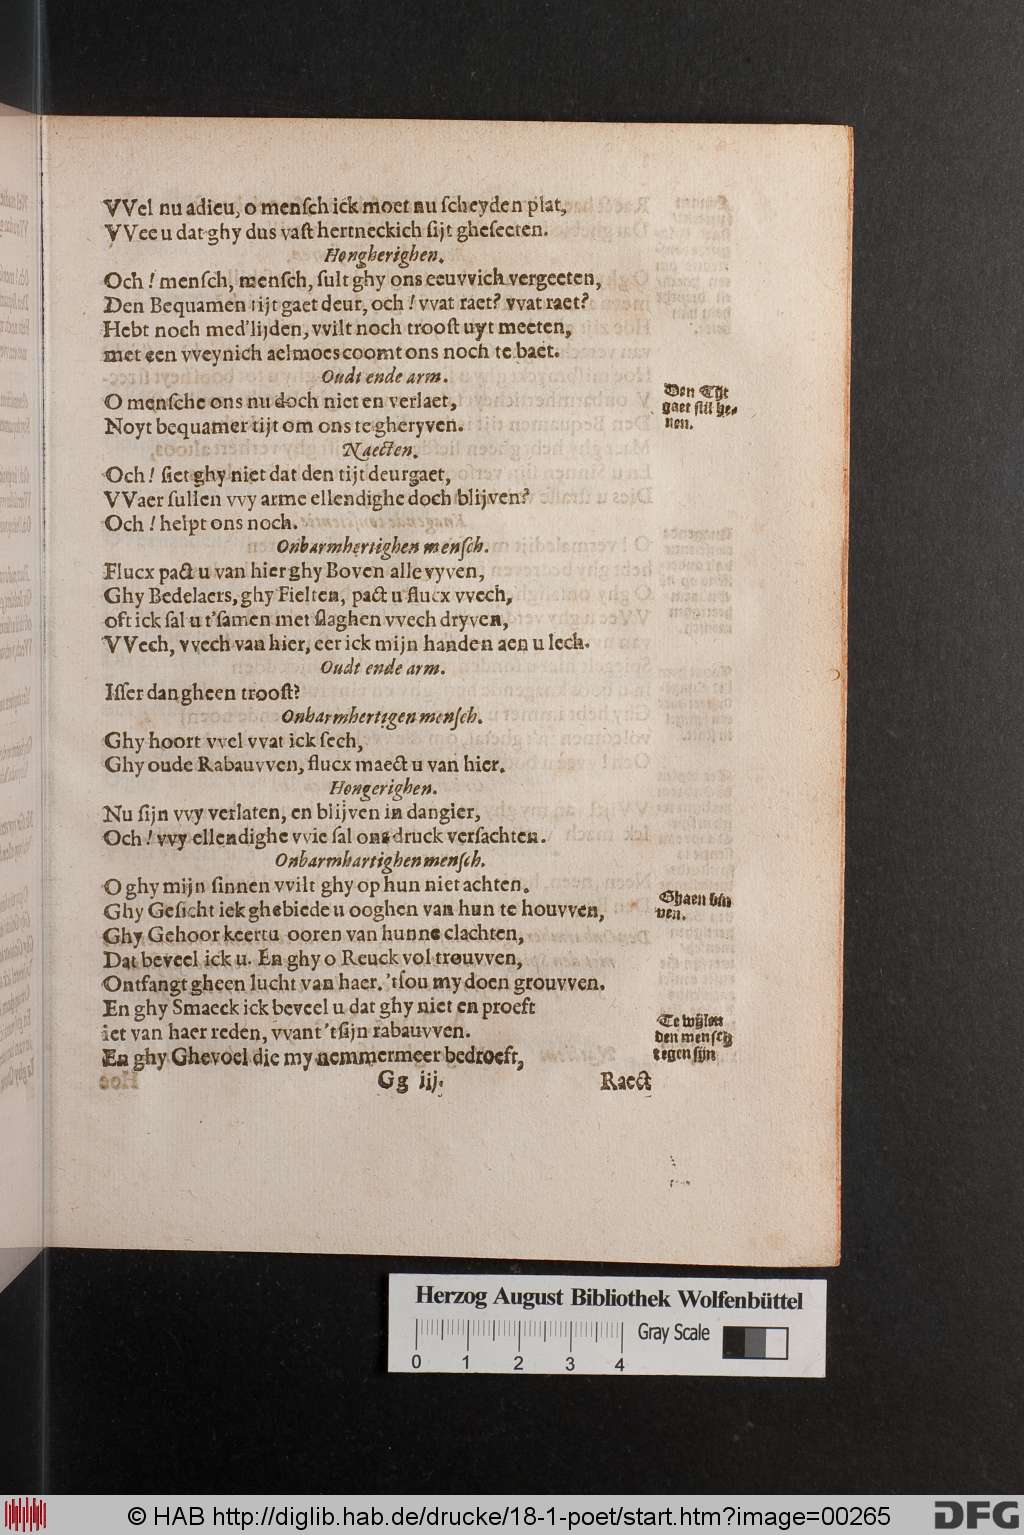 VVel nu adieu, o menſch ick moet nu ſcheyden plat,
VVee u dat ghy dus vaſt hertneckich ſijt gheſeeten.
Hongherighen.
Och! menſch, menſch, ſult ghy ons eeuvvich vergeeten,
Den Bequamen tijt gaet deur, och! vvat raet? vvat raet?
Hebt noch med'lijden, vvilt noch trooſt uyt meeten,
met een vveynich aelmoes coomt ons noch te baet.
Oudt ende arm.
O menſche ons nu doch niet en verlaet,
Noyt bequamer tijt om ons te gheryven.
Den Tijt
gaet ſtil he-
nen.
Naecten.
Och! ſiet ghy niet dat den tijt deurgaet,
VVaer ſullen vvy arme ellendighe doch blijven?
Och! helpt ons noch.
Onbarmhertighen menſch.
Flucx pact u van hier ghy Boven alle vyven,
Ghy Bedelaers, ghy Fielten, pact u flucx vvech,
oft ick ſal u t'ſamen met ſlaghen vvech dryven,
VVech, vvech van hier, eer ick mijn handen aen u lech.
Oudt ende arm.
Iſſer dan gheen trooſt?
Onbarmhertigen menſch.
Ghy hoort vvel vvat ick ſech,
Ghy oude Rabauvven, flucx maect u van hier.
Hongerighen.
Nu ſijn vvy verlaten, en blijven in dangier,
Och! vvy ellendighe vvie ſal ons druck verſachten.
Onbarmhartighen menſch.
O ghy mijn ſinnen vvilt ghy op hun niet achten.
Ghy Geſicht iek ghebiede u ooghen van hun te houvven,
Ghaen bin
nen.
Ghy Gehoor keert u ooren van hunne clachten,
Dat beveel ick u. En ghy o Reuck vol trouvven,
Ontfangt gheen lucht van haer. 'tſou my doen grouvven.
En ghy Smaeck ick beveel u dat ghy niet en proeft
iet van haer reden, vvant 'tſijn rabauvven.
En ghy Ghevoel die my nemmermeer bedroeft,
Te wijlen
den menſch
tegen ſijn
Gg iij.
Raect
Herzog August Bibliothek Wolfenbüttel
Gray Scale
0 1 2 3 4
© HAB http://diglib.hab.de/drucke/18-1-poet/start.htm?image=00265
DFG